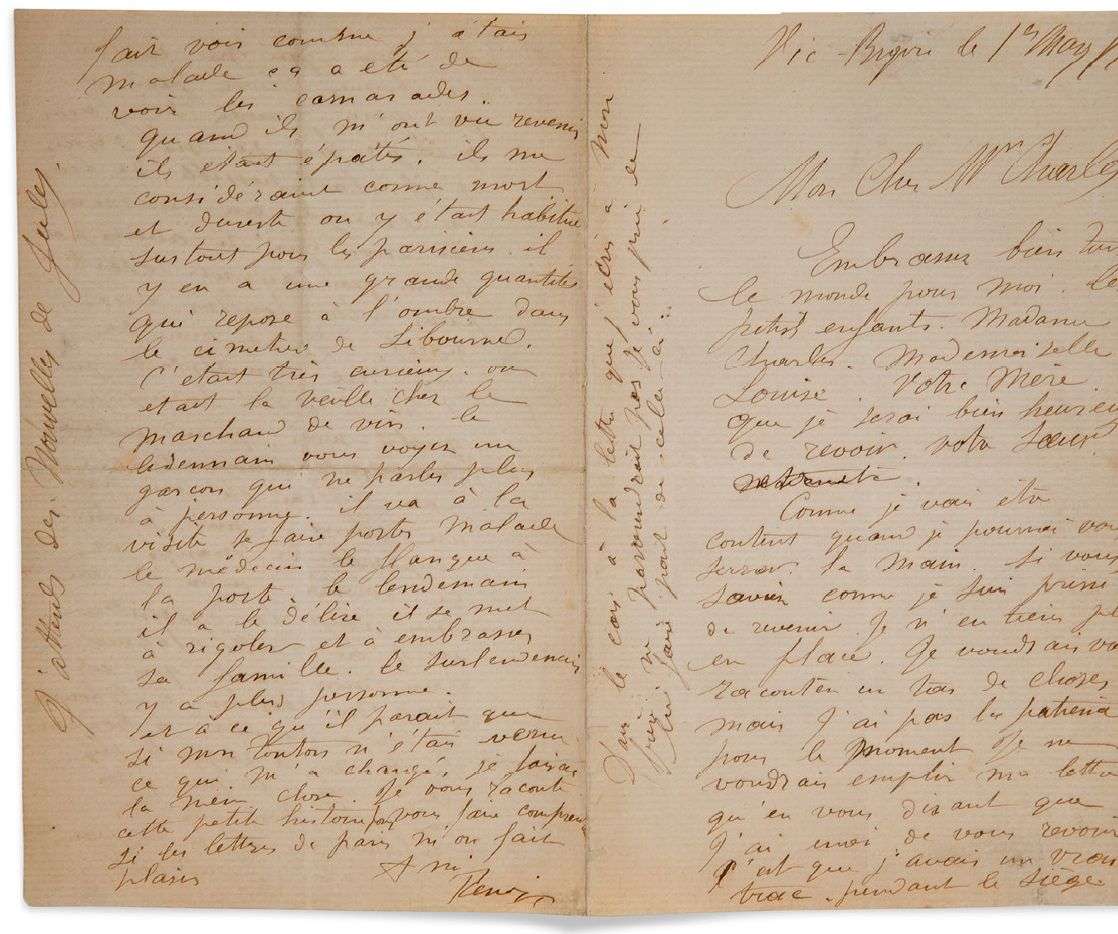 Vic-Bigorre le 1er Mars
Mon Cher Mr Charles
Embrasser bien tou
le monde pour moi. Le
petits enfants. Madame
Charles. Mademoiselle
Louise. Votre Mère
que je serai bien heureu
de revoir. votre Soeur
Comme je vais être
content quand je pourrai vou
serrer la main. Si vous
saviez comme je suis pressé
de revenir Je n'en tiens pl
en place. Je voudrais vou
raconter un tas de choses
mais j'ai pas la patience
pour le moment Je ne
voudrais emplir ma lettre
qu'en vous disant que
j'ai envie de vous revoir
c'est que j'avais un vrai
trac. pendant le siège
fait voir comme j'étais
malade ça a été de
voir les camarades.
quand ils m'ont vu revenir
ils étaient épatés. ils me
considéraint comme mort
et dureste on y était habitué
surtout pour les parisiens. il
y en a une grande quantité
qui repose à l'ombre dans
le cimetiere de Libourne.
C'etait très curieux. on
etait la veille chez le
marchand de vin. le
lendemain vous voyez un
garçon qui ne parle plus
à personne. il va à la
visite se faire porter malade
le médecin le flanque à
la porte. le lendemain
il a le délire il se met
à rigoler et à embrasser
sa famille. le surlendemain
y a plus personne.
à ce qu'il parait que
si mon tonton n'était venu
ce qui m'a changé, je faisais
la même chose. Je vous raconte
cette petite histoire pour vous faire comprendre
si les lettres de paris m'on fait
plaisir
Ami
Renoir
J'attends des Nouvelles de Jules.
Dans le cas où la lettre que j'écris à mon
ne parviendrait pas je vous prie de
lui faire part de celle ci.